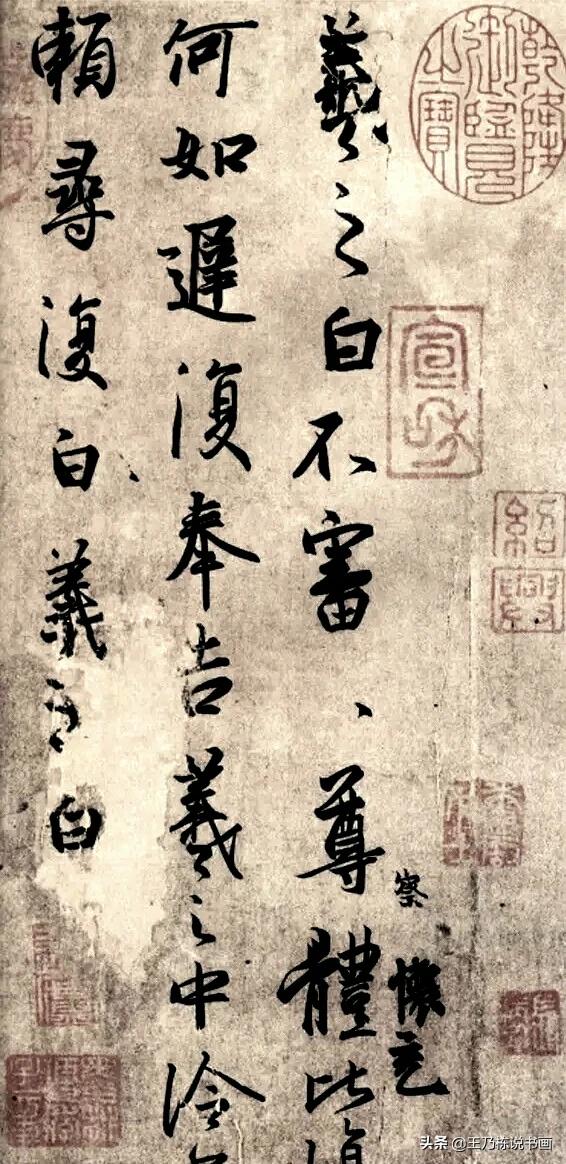 羲之白不審、尊體比
察
懷充
何如遲復奉告羲之中冷
賴尋復白羲之白
乾隆御覽之寶
宣和
紹興
头条 @王乃栋说书画